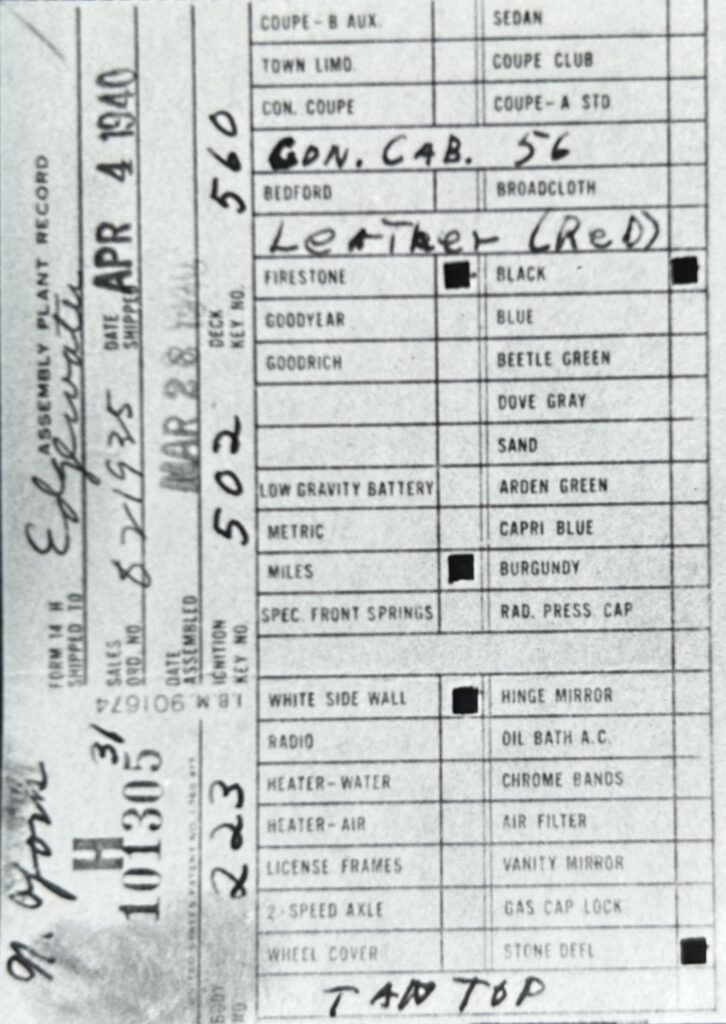 COUPE-B AUX. SEDAN
TOWN LIMO. COUPE CLUB
CON. COUPE COUPE-A STD
CON. CAB. 56
BEDFORD BROADCLOTH
Leather (Red)
FIRESTONE BLACK
GOODYEAR BLUE
GOODRICH BEETLE GREEN
DOVE GRAY
SAND
LOW GRAVITY BATTERY ARDEN GREEN
METRIC CAPRI BLUE
MILES BURGUNDY
SPEC. FRONT SPRINGS RAD. PRESS CAP
WHITE SIDE WALL HINGE MIRROR
RADIO OIL BATH A.C.
HEATER-WATER CHROME BANDS
HEATER-AIR AIR FILTER
LICENSE FRAMES VANITY MIRROR
2-SPEED AXLE GAS CAP LOCK
WHEEL COVER STONE DEFL
TAN TOP
FORM 14 H ASSEMBLY PLANT RECORD
SHIPPED TO Edgewater
SALES ORD. NO. 821935 DATE SHIPPED APR 4 1940
DATE ASSEMBLED MAR 28 1940
IGNITION KEY NO. 502 DECK KEY NO. 560
I.B.M. 901674
31
H
101305
BODY NO. 223